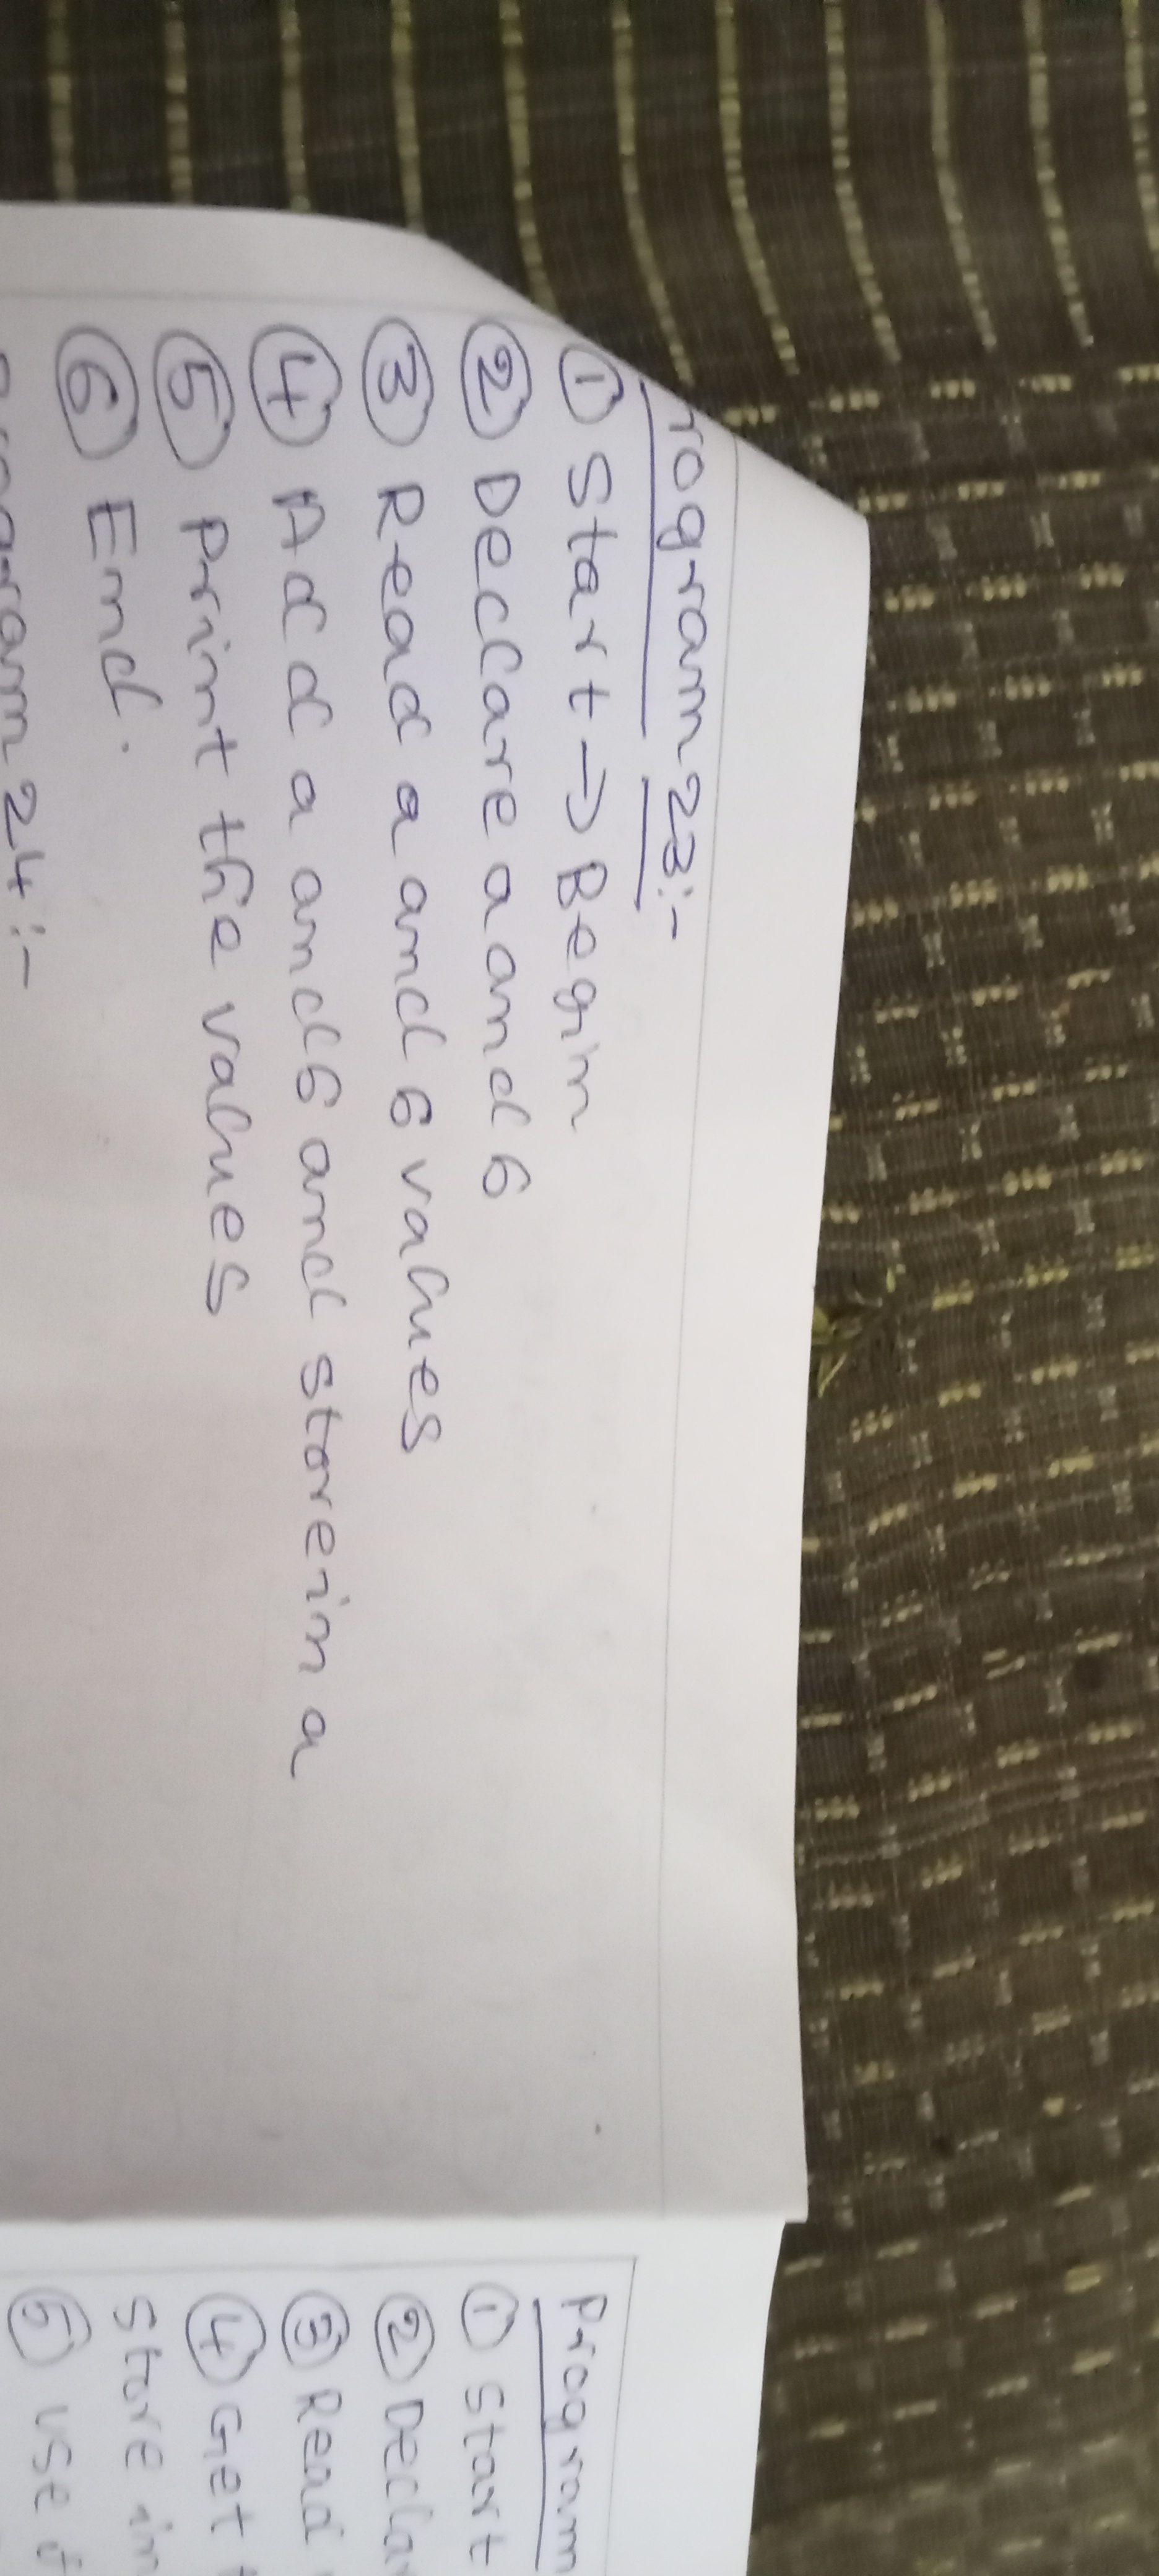 rogram 23:-
① Start → Begin
② Declare a and b
③ Read a and b values
④ Add a and b and store in a
⑤ print the values
⑥ End.
program 24:-
Program
① Start
② Decla
③ Read
④ Get
store in
⑤ use